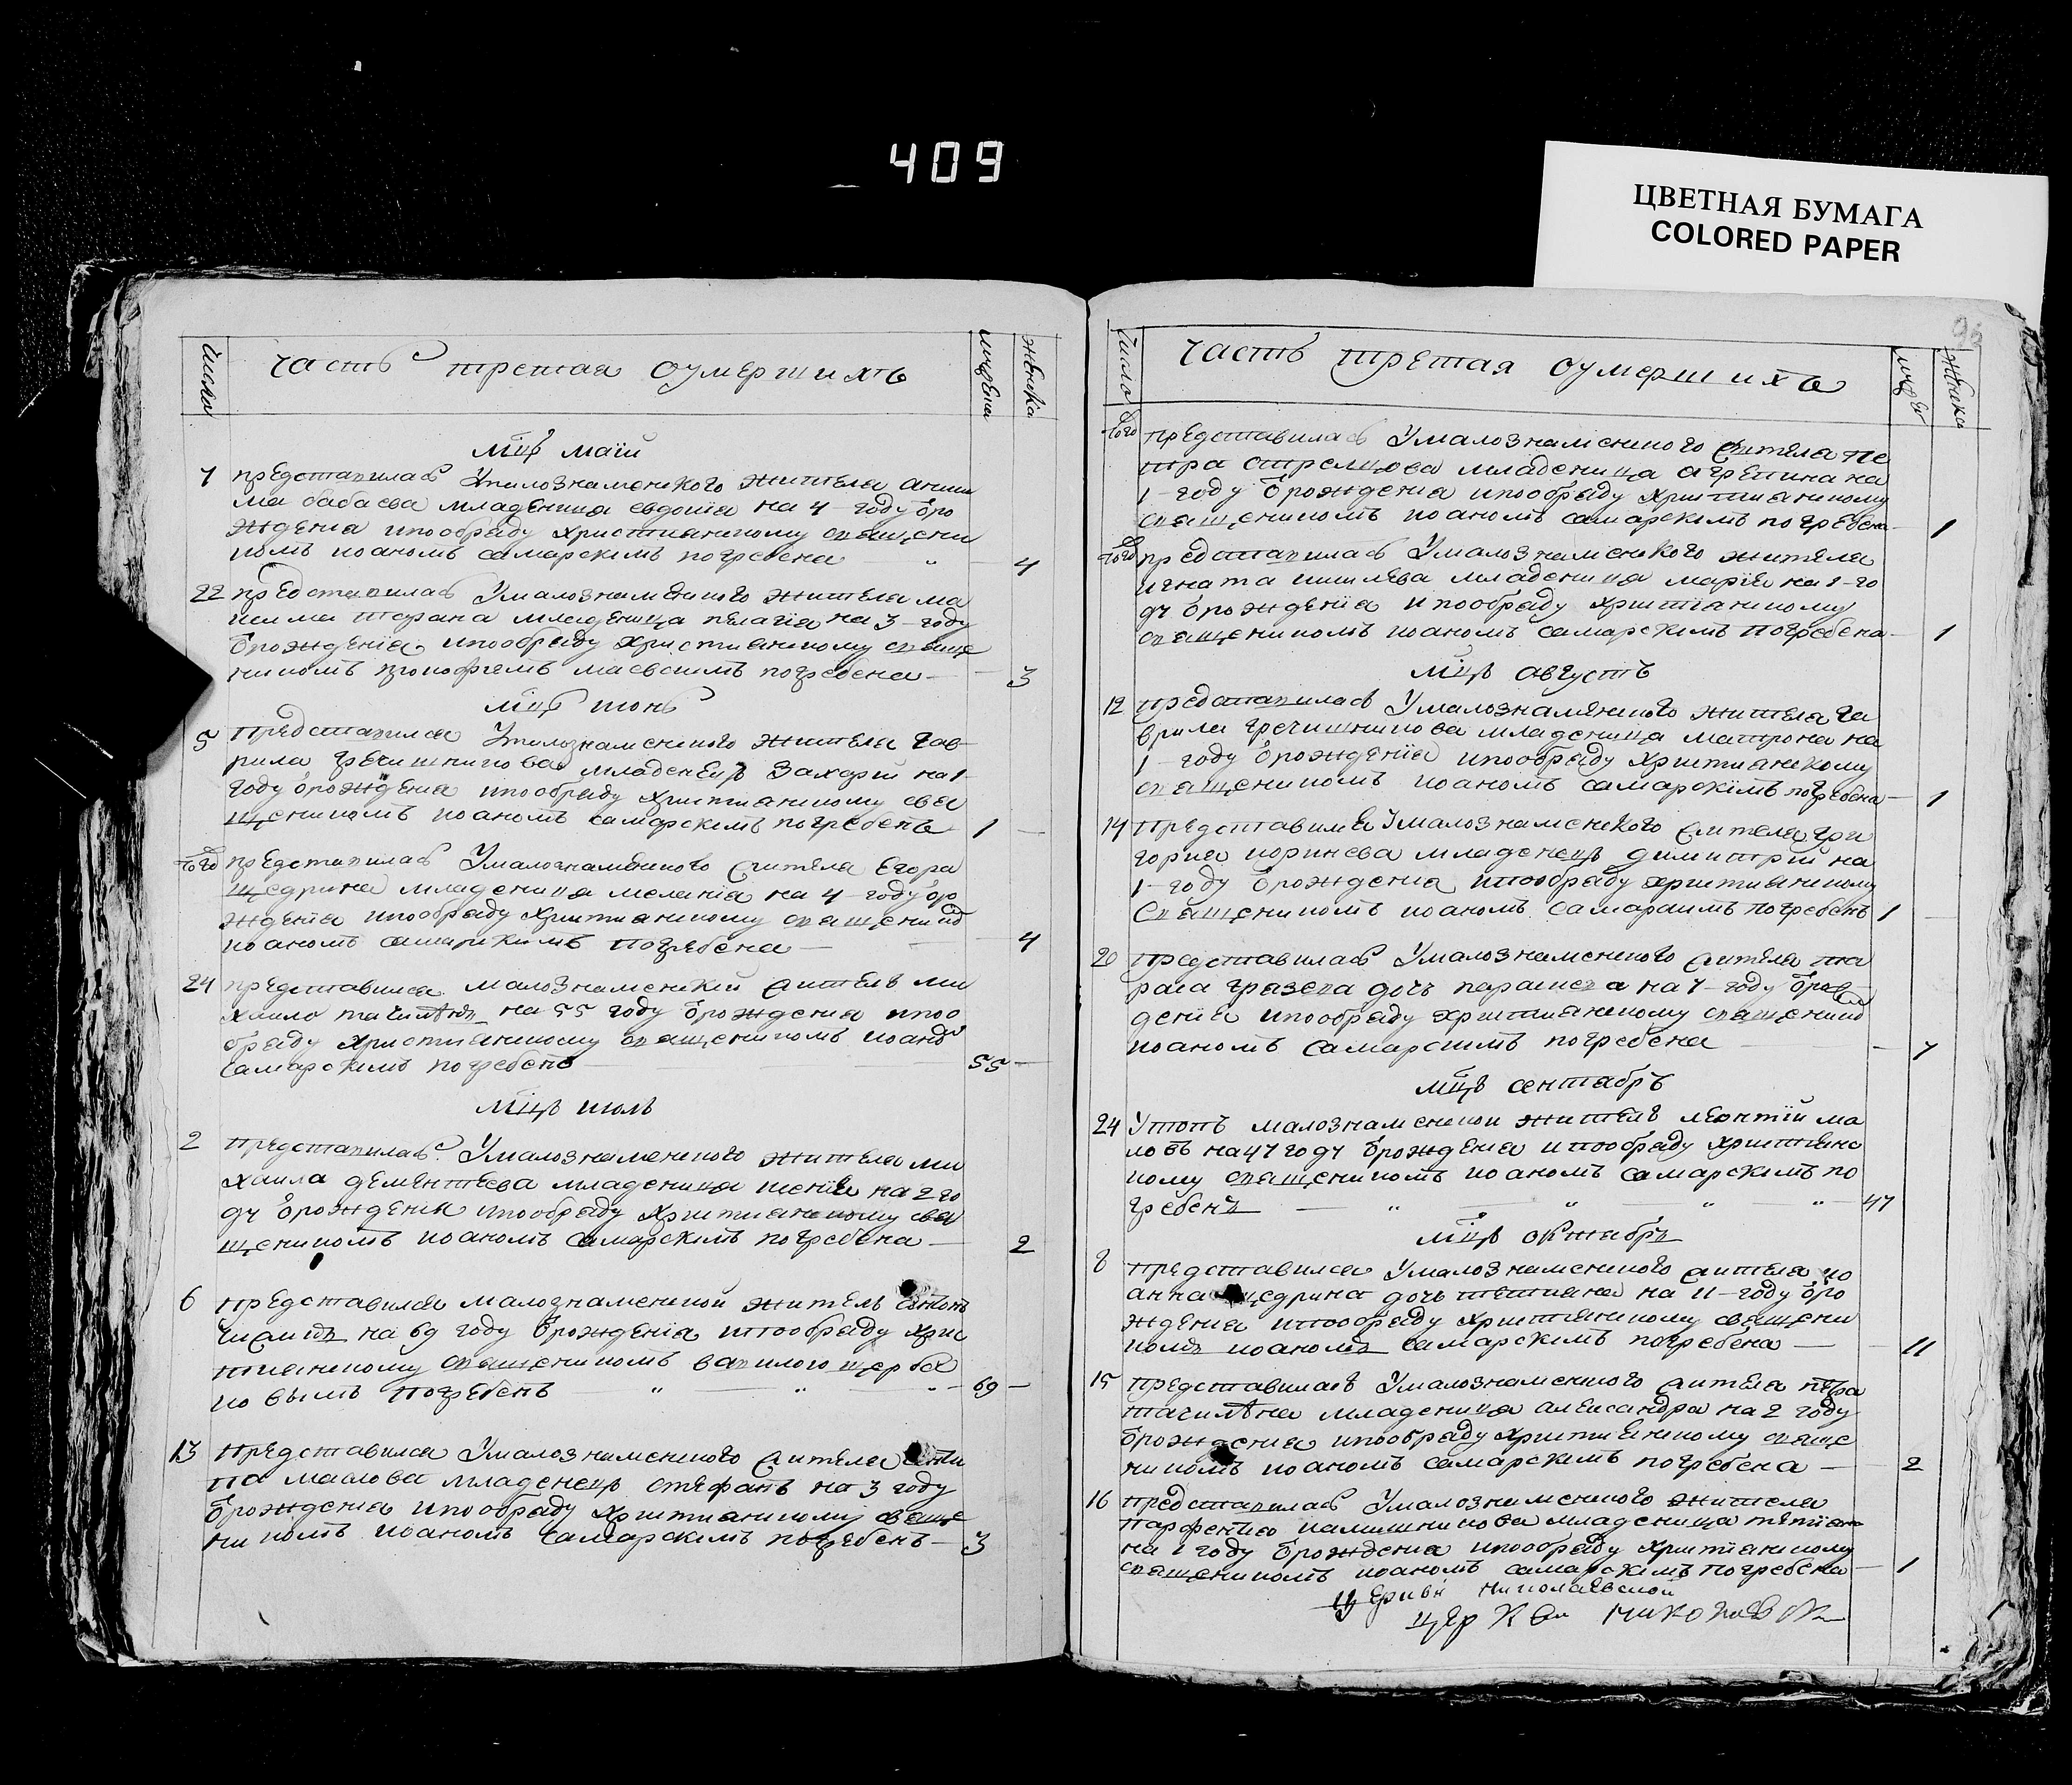 409
ЦВЕТНАЯ БУМАГА
COLORED PAPER
число
часть третая оумершихъ
мужеска
женска
мцъ маїи
7 представилас Умалознаменского жителя
ма бабаева младеница евдокїя на 4 году ѿро
ждения ипообряду христианскому священи
комъ иоаномъ самарскимъ погребена " 4
22 представилас Умалознаменского жителя ма
ксима младеница пелагїя на 3 году
ѿрождения ипообряду христианскому свяще
никомъ прокофиемъ маевскимъ погребена — 3
мцъ июнь
5 Представился Умалознаменского жителя гав
рила гречишникова младенецъ Захарїй на 1
году ѿрождения ипообряду християнскому свя
щенникомъ иоаномъ самарскимъ погребенъ 1 —
того представилас Умалознаменского жителя Егора
щедрина младеница меланїя на 4 году ѿро
ждения ипообряду християнскому священик
иоаномъ самарскимъ погребена — 4
24 представился малознаменский житель ми
хаило на 55 году ѿрождения ипоо
бряду християнскому священикомъ иоано
самарскимъ погребенъ — 55 —
мцъ июль
2 представилас Умалознаменского жителя ми
хаила дементьева младеница на 2 го
ду ѿрождения ипообряду християнскому свя
щеникомъ иоаномъ самарскимъ погребена — 2
6 представился малознаменской житель
на 69 году ѿрождения ипообряду хри
стианскому священикомъ
погребенъ " " " — 69 —
13 представился Умалознаменского жителя
па маслова младенецъ стефанъ на 3 году
ѿрождения ипообряду християнскому свяще
никомъ иоаномъ самарскимъ погребенъ — 3
число
часть третая оумершихъ
женска
того представилас Умалознаменского жителя пе
тра стрелцова младеница агрепина на
1 году ѿрождения ипообряду християнскому
священикомъ иоаномъ самарскимъ погребена 1
того представилас Умалознаменского жителя
игната младеница марїя на 1 го
ду ѿрождения ипообряду християнскому
священикомъ иоаномъ самарскимъ погребена 1
мцъ августъ
12 представилас Умалознаменского жителя га
врила гречишникова младеница матрона на
1 году ѿрождения ипообряду християнскому
священикомъ иоаномъ самарскимъ погребена — 1
14 Представился Умалознаменского жителя гри
гория младенецъ димитрїй на
1 году ѿрождения ипообряду християнскому
Священикомъ иоаномъ самарскимъ погребенъ 1 —
20 представилас Умалознаменского жителя та
раса дочъ параскева на 7 году ѿрож
дения ипообряду християнскому священик
иоаномъ самарскимъ погребена — 7
мцъ сентябръ
24 Утопъ малознаменской житель леонтїй ма
ловъ на 47 году ѿрождения ипообряду християнс
кому священикомъ иоаномъ самарскимъ по
гребенъ — " — " — " — " 47
мцъ октябръ
8 представился Умалознаменского жителя ио
анна щедрина дочь татияна на 11 году ѿро
ждения ипообряду християнскому священи
комъ иоаномъ самарскимъ погребена — 11
15 представилась Умалознаменского жителя петра
младеница александра на 2 году
ѿрождения ипообряду християнскому свяще
никомъ иоаномъ самарскимъ погребена — 2
16 представилас Умалознаменского жителя
младеница татияна
на 1 году ѿрождения ипообряду християнскому
священикомъ иоаномъ самарскимъ погребена — 1
церкви николаевской